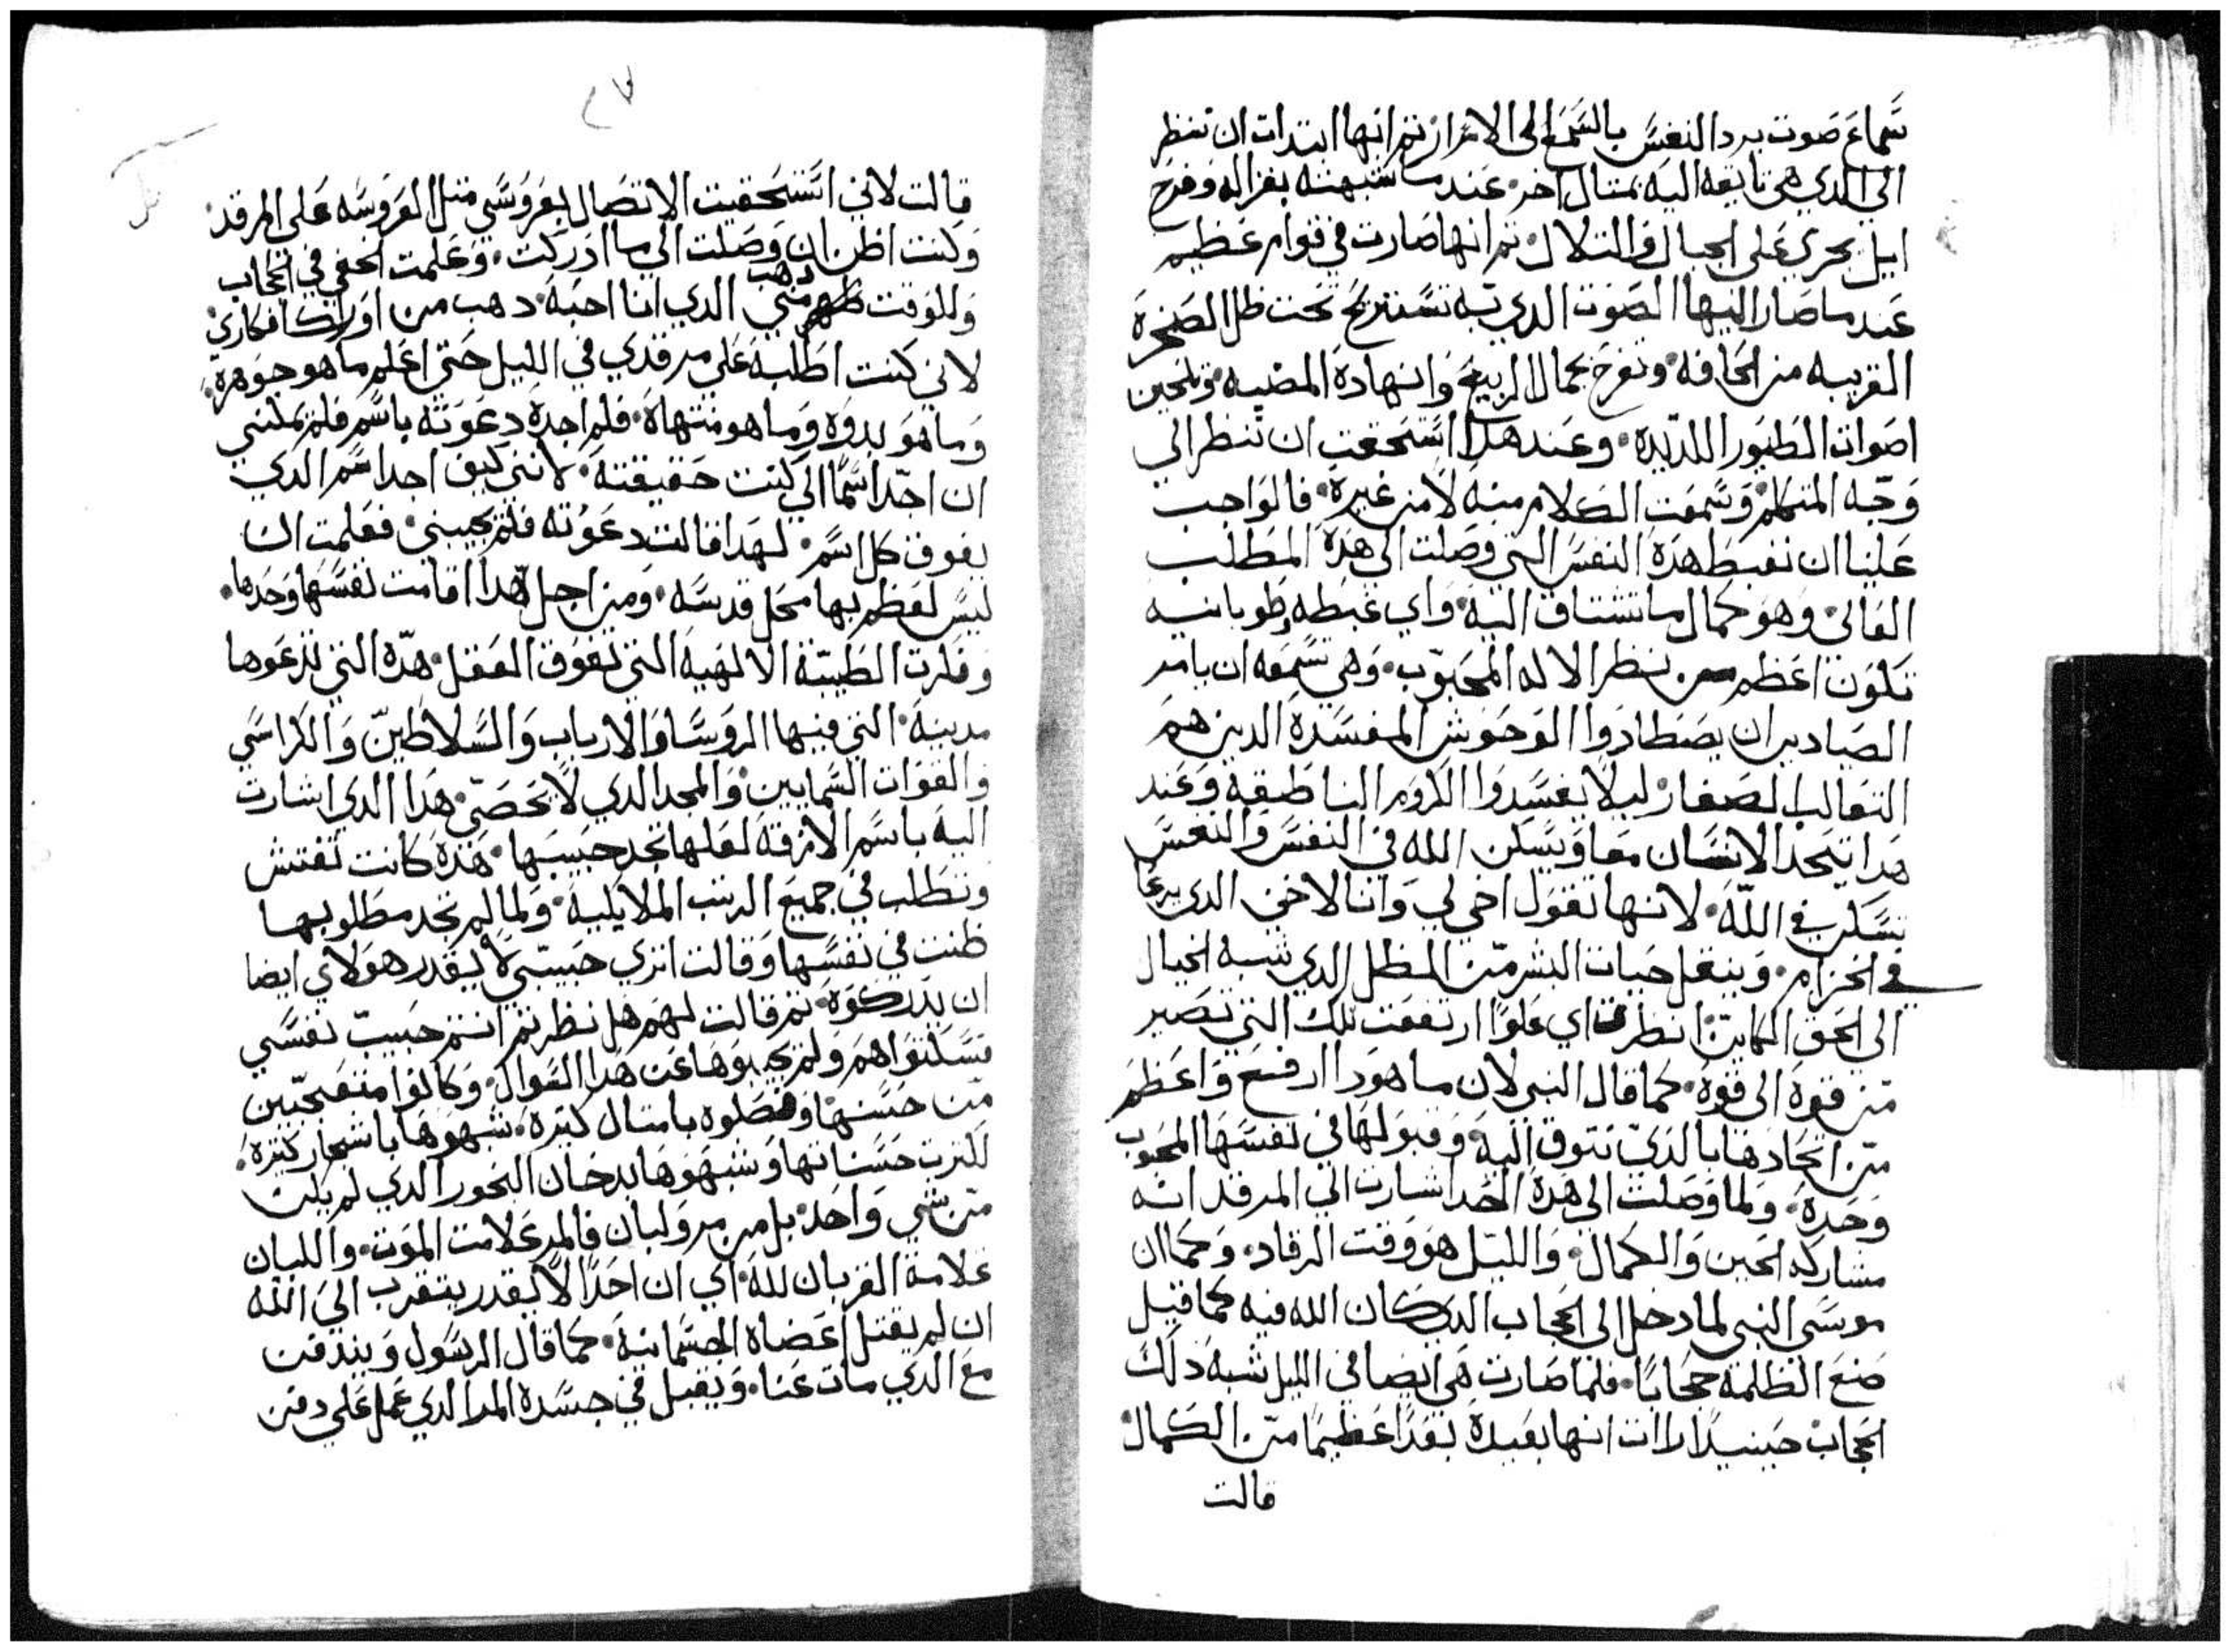 سماع صوت يرد النفس بالسمع الى الاحراز ثم انها ابتدات ان تنظر
الى الدي هي تايقه اليه بمثال اخر. عند ما شبهته بغزاله وفرخ
ايل يجري على الجبال والتلال. ثم انها صارت في قوام عظيم
عند ما صار اليها الصوت الدي به تستريح تحت ظل الصخرة
القريبه من الحافه. وتفرح بجمال الربيع وانهادة المضيه وتلحين
اصوات الطيور اللديده. وعند هدا استحقت ان تنظر الي
وجه المتكلم. وسمعت الكلام منه لا من غيره. فالواجب
علينا ان نغبط هده النفس التي وصلت الى هده المطلب
العالي. وهو كمال ما تشتاق اليه. واي غبطه وطوبانيه
تكون اعظم من نظر الاله المحبوب. وهي تسمعه ان يامر
الصيادين ان يصطادوا الوحوش المفسدة الدين هم
التعالب الصغار. ليلا يفسدوا الكروم الناطيقه وعند
هدا يتحد الانسان معا ويسكن الله في النفس والنفس
تسكن في الله. لانها تقول اخي لي وانا لاخي الدي يرعا
في الخزام. وينقل حيات البشر من الظل الدي شبه الخيال
الى الحق الكاين. انظر اي علوا ارتفعت تلك التي تصير
من قوة الى قوة. كما قال النبي لان ما هودا ارفع واعظم
من اتحادها بالدي تتوق اليه. وقبولها في نفسها المحبوب
وحدة. ولما وصلت الى هدة الحد اشارت الي المرقد انه
مشاركه الحين والكمال. والليل هو وقت الرقاد. وكما ان
موسى النبي لما دخل الى الحجاب الدي كان الله فيه كما قيل
صنع الظلمة حجابا. فلما صارت هي ايضا في الليل شبه دلك
الحجاب حينيدا رات انها بعيدة بعدا عظيما من الكمال
قالت
٢٧
قالت لاني استحقيت الاتصال بعروسي متل العروسه على المرقد.
وكنت اظن ان وصلت الي ما ادركت. وعلمت الخفي في الحجاب
وللوقت دهب مني الدي انا احبه. دهب من اوراك افكاري
لاني كنت اطلبه على مرقدي في الليل حتى اعلم ما هو جوهرة.
وما هو بدوه وما هو منتهاة. فلم اجدة دعوته باسم فلم يمكنني
ان اجد اسما الي كنت حقيقته. لانني كيف اجد اسم الدي
يفوق كل اسم. لهدا قالت دعوته فلم يجيبني. فعلمت ان
ليس لعظم بها محل قدسه. ومن اجل هدا اقامت نفسها وحدها.
وفكرت الطبيه الالهيه التي تفوق العقل. هده التي تدعوها
مدينه. التي فيها الروسا والارباب والسلاطين والكراسي
والقوات السمايين. والمجد الدي لا يحصى. هدا الدي اشارت
اليه باسم الازقة لعلها تجد حبيبها. هدة كانت تفتش
وتطلب في جميع الرتب الملايكيه. ولما لم تجد مطلوبها
ظنت في نفسها وقالت اتري حبيبي لا يقدر هولاي ايضا
ان يدركوه. تم قالت لهم هل نظرتم انتم حبيب نفسي
فسكتوا هم ولم يجيبوها عن هدا السوال. وكانوا متعجبين
من حسنها وفضلوه بامتال كتيرة. شبهوها باشجار كتيرة.
لكترت حسناتها وشبهوها بدخان البخور الدي لم يكن
من شي واحد. بل من مر ولبان فالمر علامت الموت. واللبان
علامة القربان لله. اي ان احدا لا يقدر يتقرب الى الله
ان لم يقتل اعضاه الجسمانية. كما قال الرسول ويندفن
مع الدي مات عنا. ويقبل في جسدة المر الدي عمل على دفن